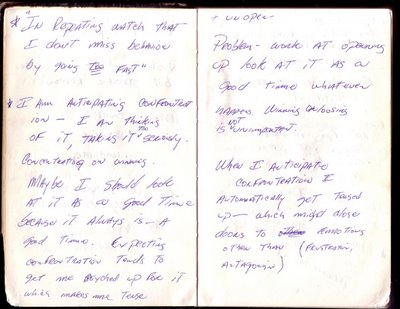 * "In Repeating watch that
I don't miss behavior
by going too fast"
* I Am Anticipating Confrontat
ion – I Am thinking
of it, taking it too seriously.
Concentrating on winning.
Maybe I should look
at it as a good time
because it always is – a
good time. Expecting
confrontation tends to
get me psyched up for it
which makes me tense
+ unopen
Problem – work at opening
up look at it as a
good time whatever
happens winning or loosing
is not unimportant.
When I anticipate
confrontation I
automatically get tensed
up – which might close
doors to emotions
other than (frustration,
antagonism)